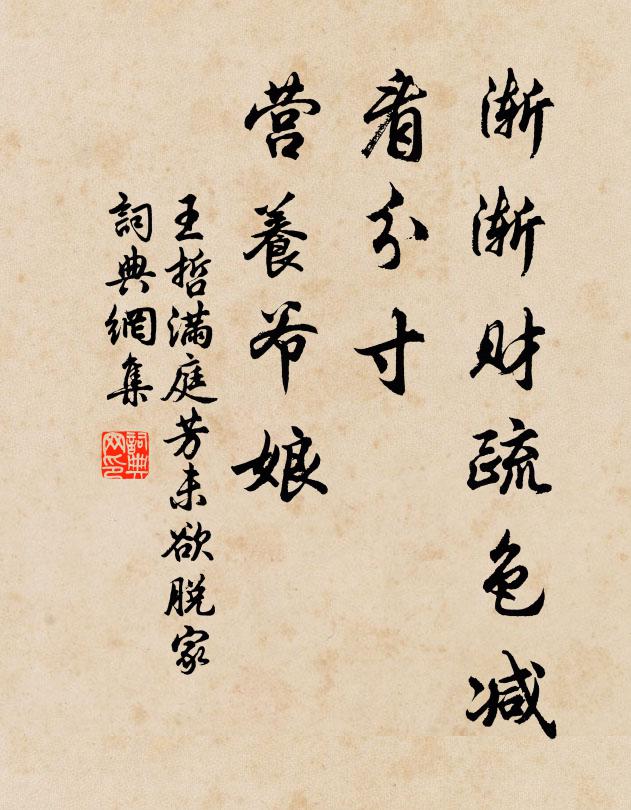 渐渐财疏色减
看分寸
营養爷娘
王哲满庭芳未欲脱家
詞典網集
詞典
网印